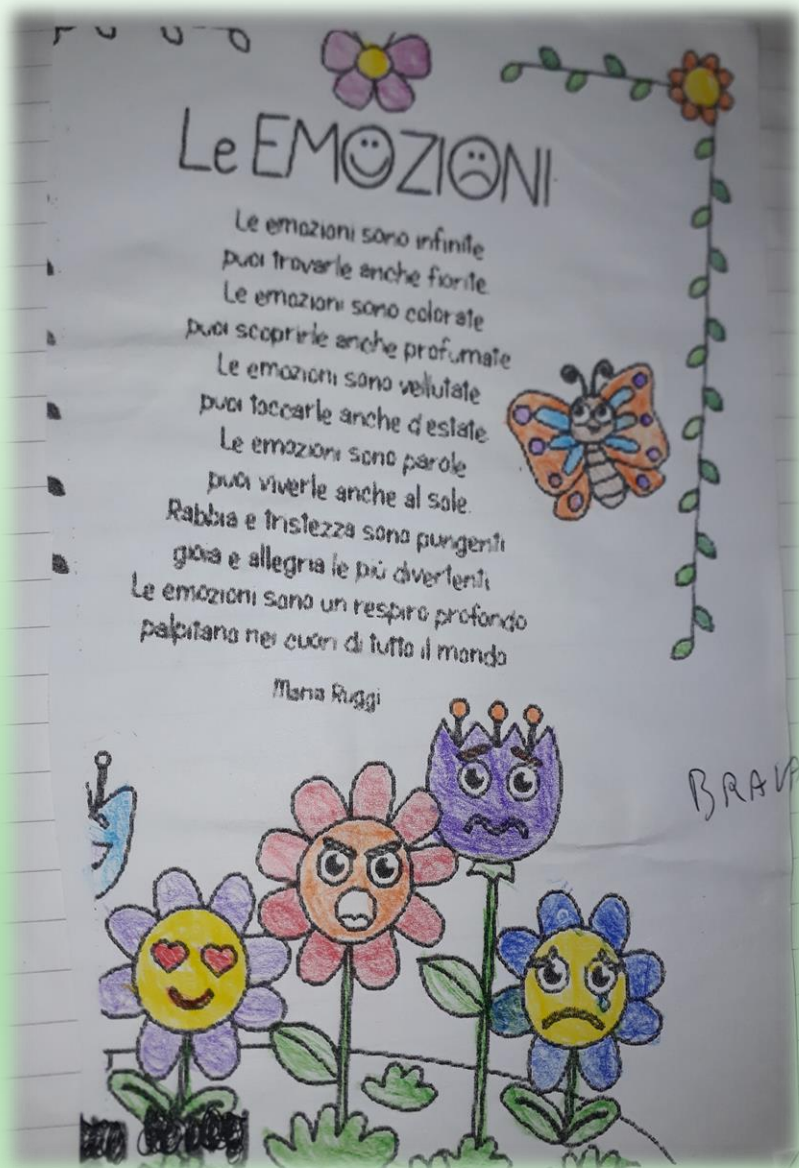 Le EMOZIONI
Le emozioni sono infinite
puoi trovarle anche fiorite.
Le emozioni sono colorate
puoi scoprirle anche profumate
Le emozioni sono vellutate
puoi toccarle anche d'estate.
Le emozioni sono parole
puoi viverle anche al sole.
Rabbia e tristezza sono pungenti
gioia e allegria le più divertenti
Le emozioni sono un respiro profondo
palpitano nei cuori di tutto il mondo
Maria Ruggi
BRAVA